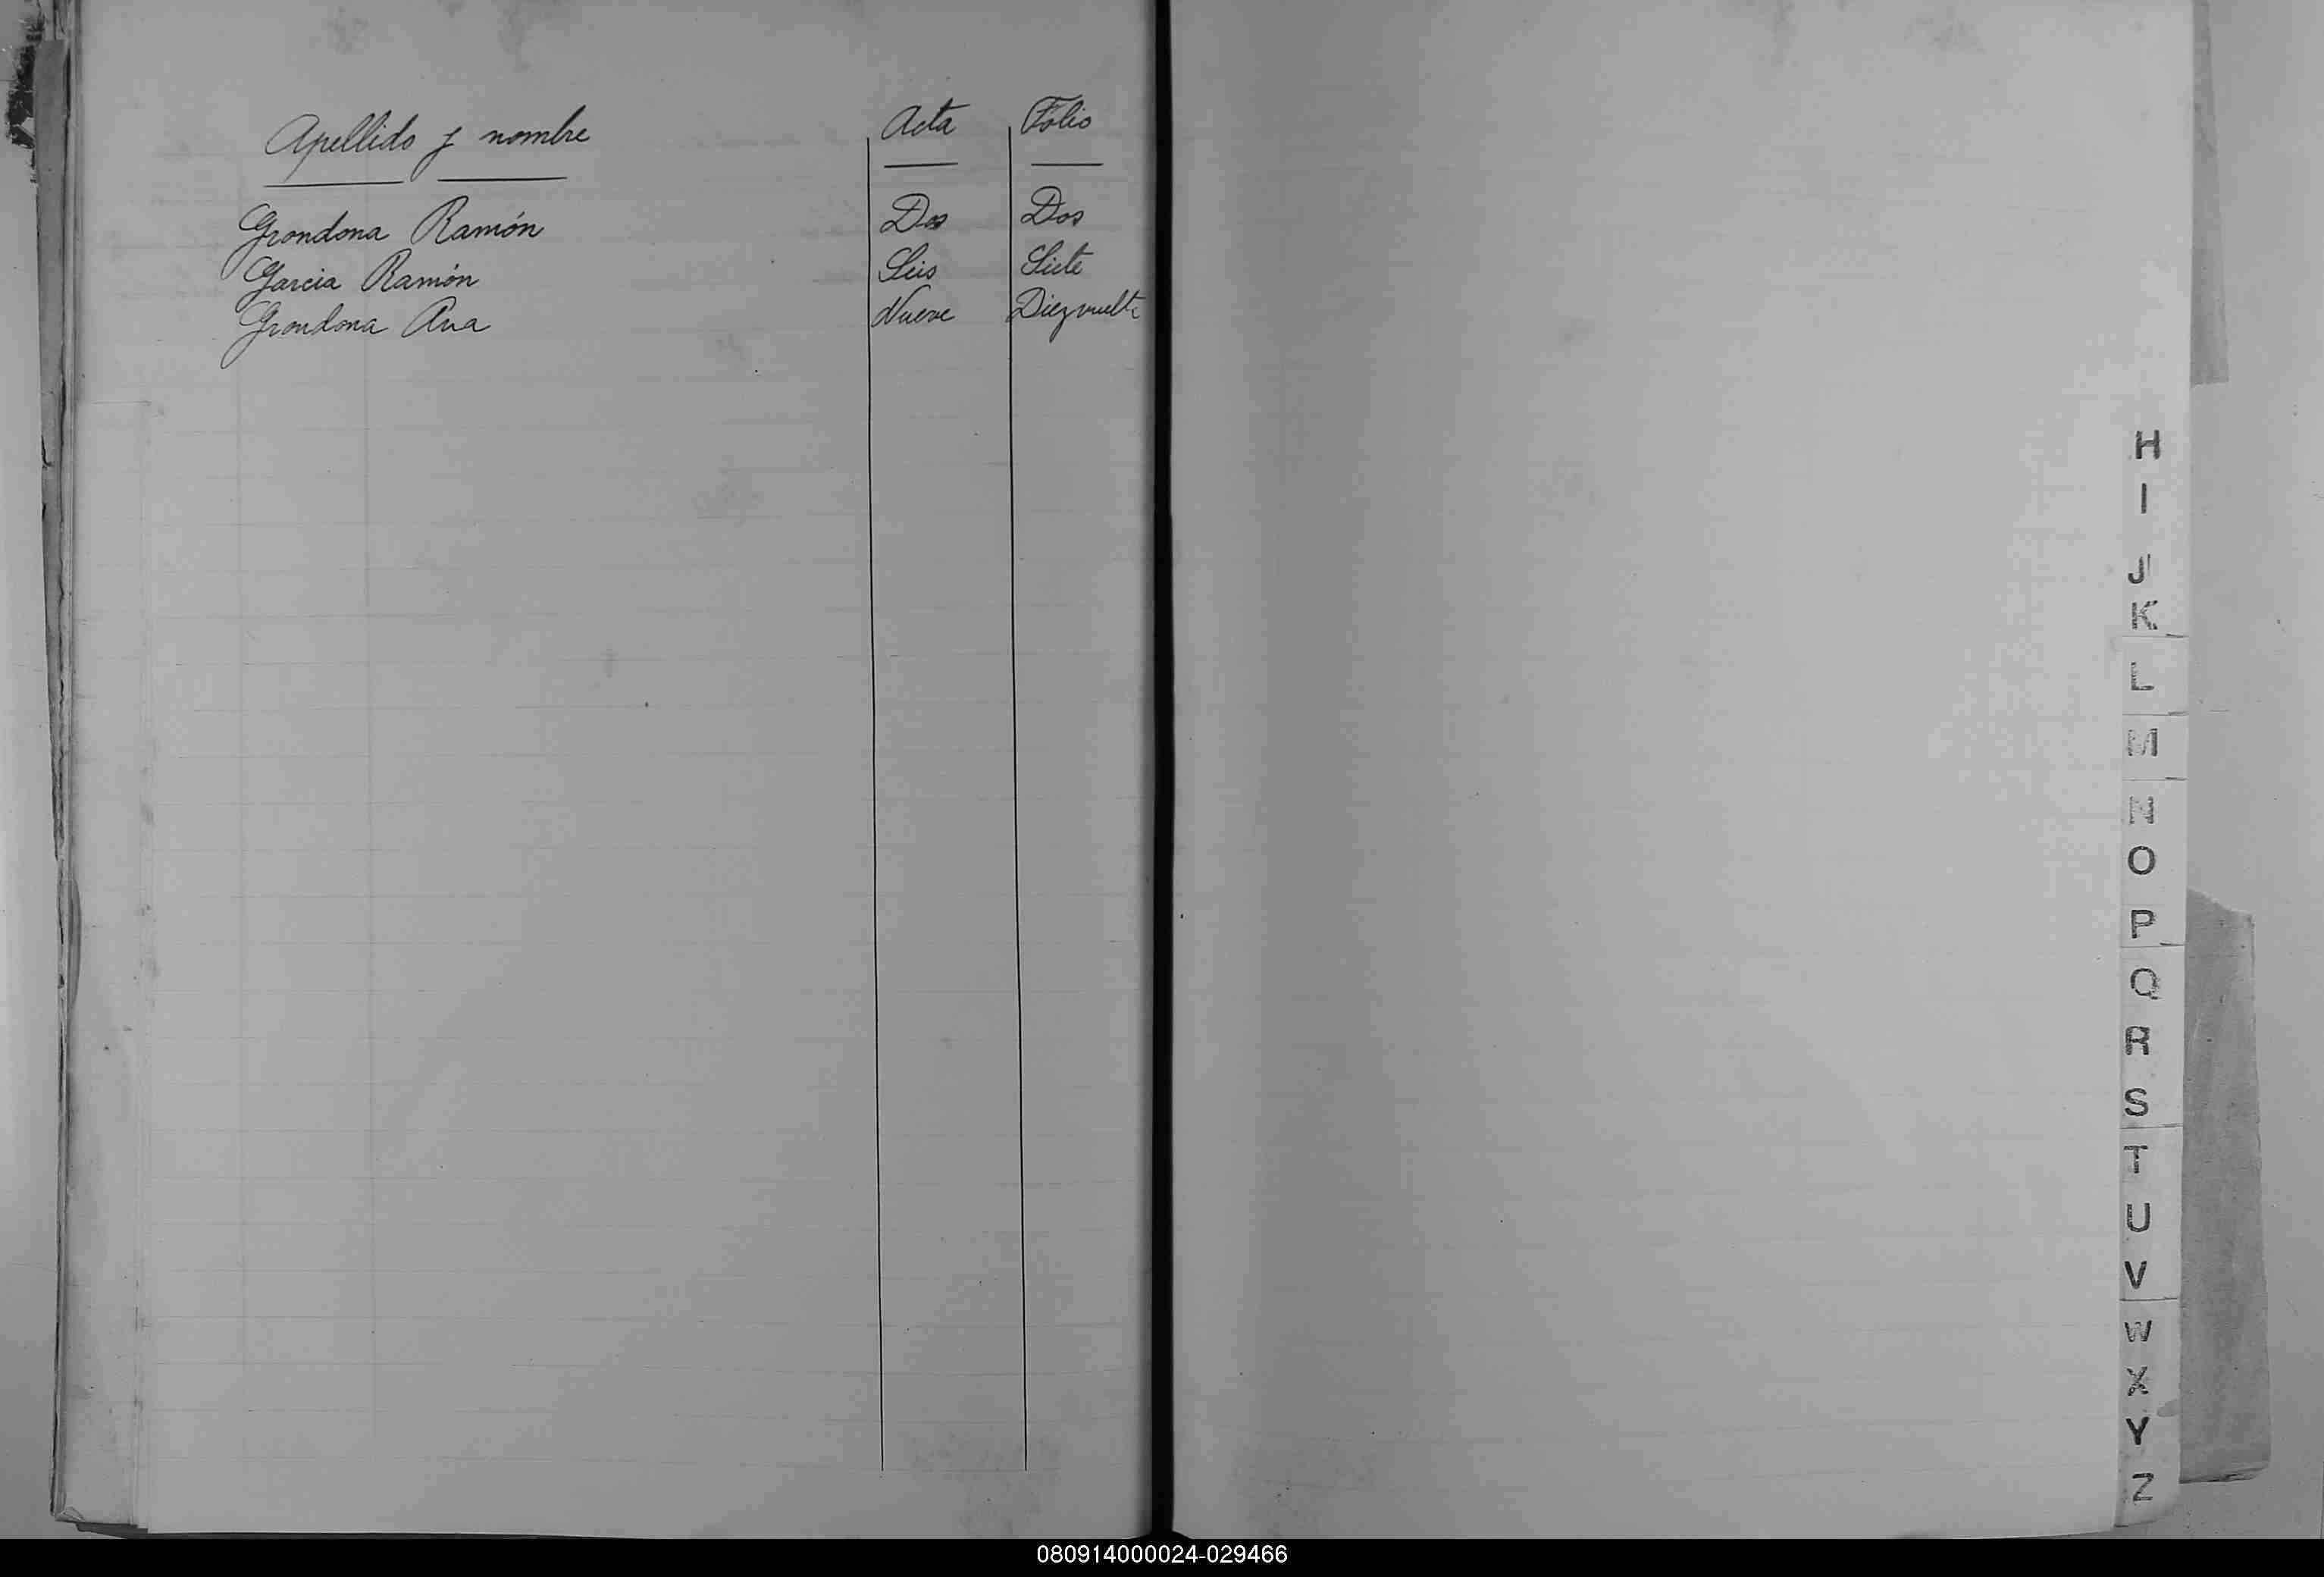 Apellido y nombre Acta Folio
Grondona Ramón Dos Dos
Garcia Ramón Seis Siete
Grondona Ana Nueve Diez vuelta
H
I
J
K
L
M
N
O
P
Q
R
S
T
U
V
W
X
Y
Z
080914000024-029466